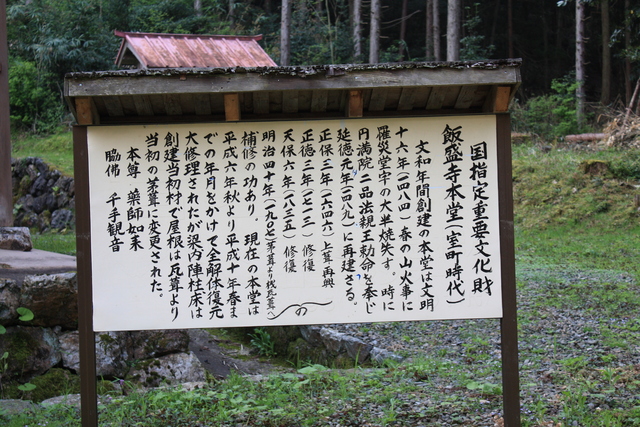 国指定重要文化財
飯盛寺本堂(室町時代)
文和年間創建の本堂は文明
十六年(一四八四)春の山火事に
罹災堂宇の大半焼失す。時に
円満院二品法親王勅命を奉じ
延徳元年(一四八九)に再建さる。
正保三年(一六四六)上葺再興
正徳二年(一七一二)修復
天保六年(一八三五)修復
明治四十年(一九〇七)(茅葺より桟瓦葺へ)の
補修の功あり、現在の本堂は
平成六年秋より平成十年春ま
での年月をかけて全解体復元
大修理されたが梁内陣柱床は
創建当初材で屋根は瓦葺より
当初の茅葺に変更された。
本尊 薬師如来
脇佛 千手観音